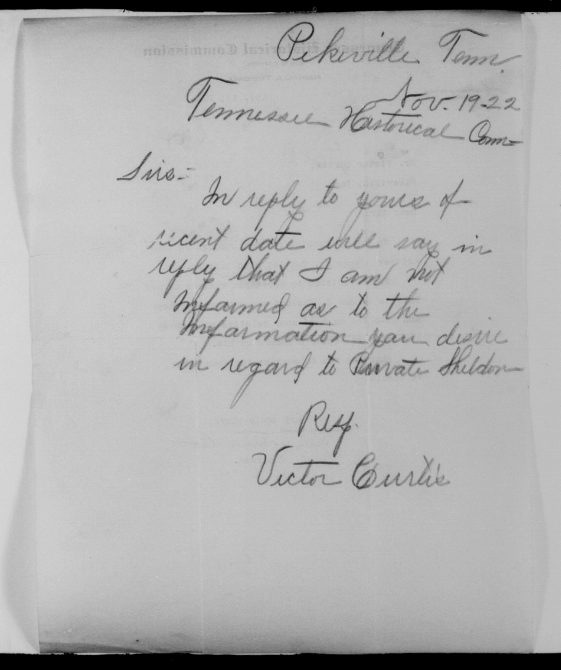 Pikeville Tenn.
Nov. 19-22
Tennessee Historical Com-
Sirs-
In reply to yours of
recent date will say in
reply that I am not
informed as to the
Information you desire
in regard to Private Sheldon
Resp.
Victor Curtis